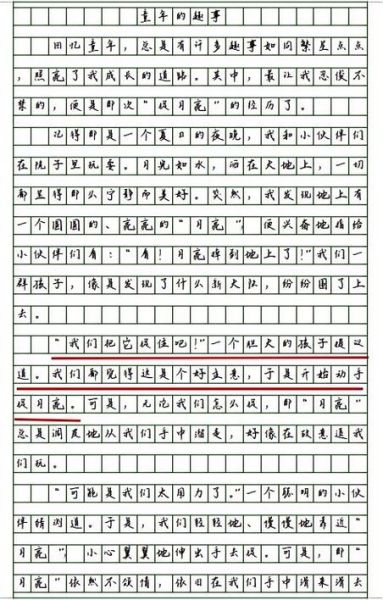 童年的趣事
回忆童年，总是有许多趣事如同繁星点点
，照亮了我成长的道路。其中，最让我忍俊不
禁的，便是那次“捉月亮”的经历了。
记得那是一个夏日的夜晚，我和小伙伴们
在院子里玩耍。月光如水，洒在大地上，一切
都显得那么宁静而美好。突然，我发现地上有
一个圆圆的、亮亮的“月亮”，便兴奋地指给
小伙伴们看：“看！月亮掉到地上了！”我们一
群孩子，像是发现了什么新大陆，纷纷围了上
去。
“我们把它捉住吧！”一个胆大的孩子提议
道。我们都觉得这是个好主意，于是开始动手
捉月亮。可是，无论我们怎么捉，那“月亮”
总是调皮地从我们手中溜走，好像在故意逗我
们玩。
“可能是我们太用力了。”一个聪明的小伙
伴猜测道。于是，我们轻轻地、慢慢地靠近“
月亮”，小心翼翼地伸出手去捉。可是，那“
月亮”依然不领情，依旧在我们手中滑来滑去